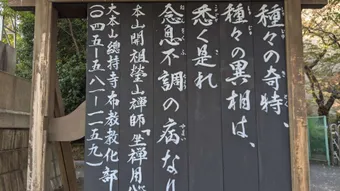 種々の奇特、
種々の異相は、
悉く是れ
念息不調の病なり
本山開祖瑩山禅師『坐禅用心
大本山總持寺布教教化部
〇四五-五八一-一五九